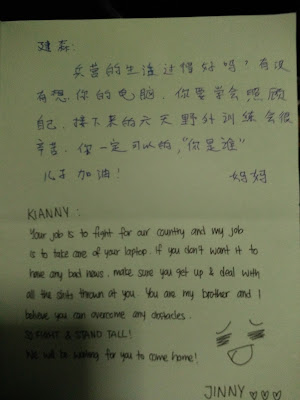 建磊:
兵营的生活过得好吗,有没
有想你的电脑. 你要学会照顾
自己. 接下来的六天野外训练会很
辛苦. 你一定可以的,"你是谁"
儿子加油! 妈妈
KIANNY :
Your job is to fight for our country and my job
is to take care of your laptop. If you don't want it to
have any bad news, make sure you get up & deal with
all the shits thrown at you. You are my brother and I
believe you can overcome any obstacles.
SO FIGHT & STAND TALL!
We will be waiting for you to come home!
JINNY ♡♡♡